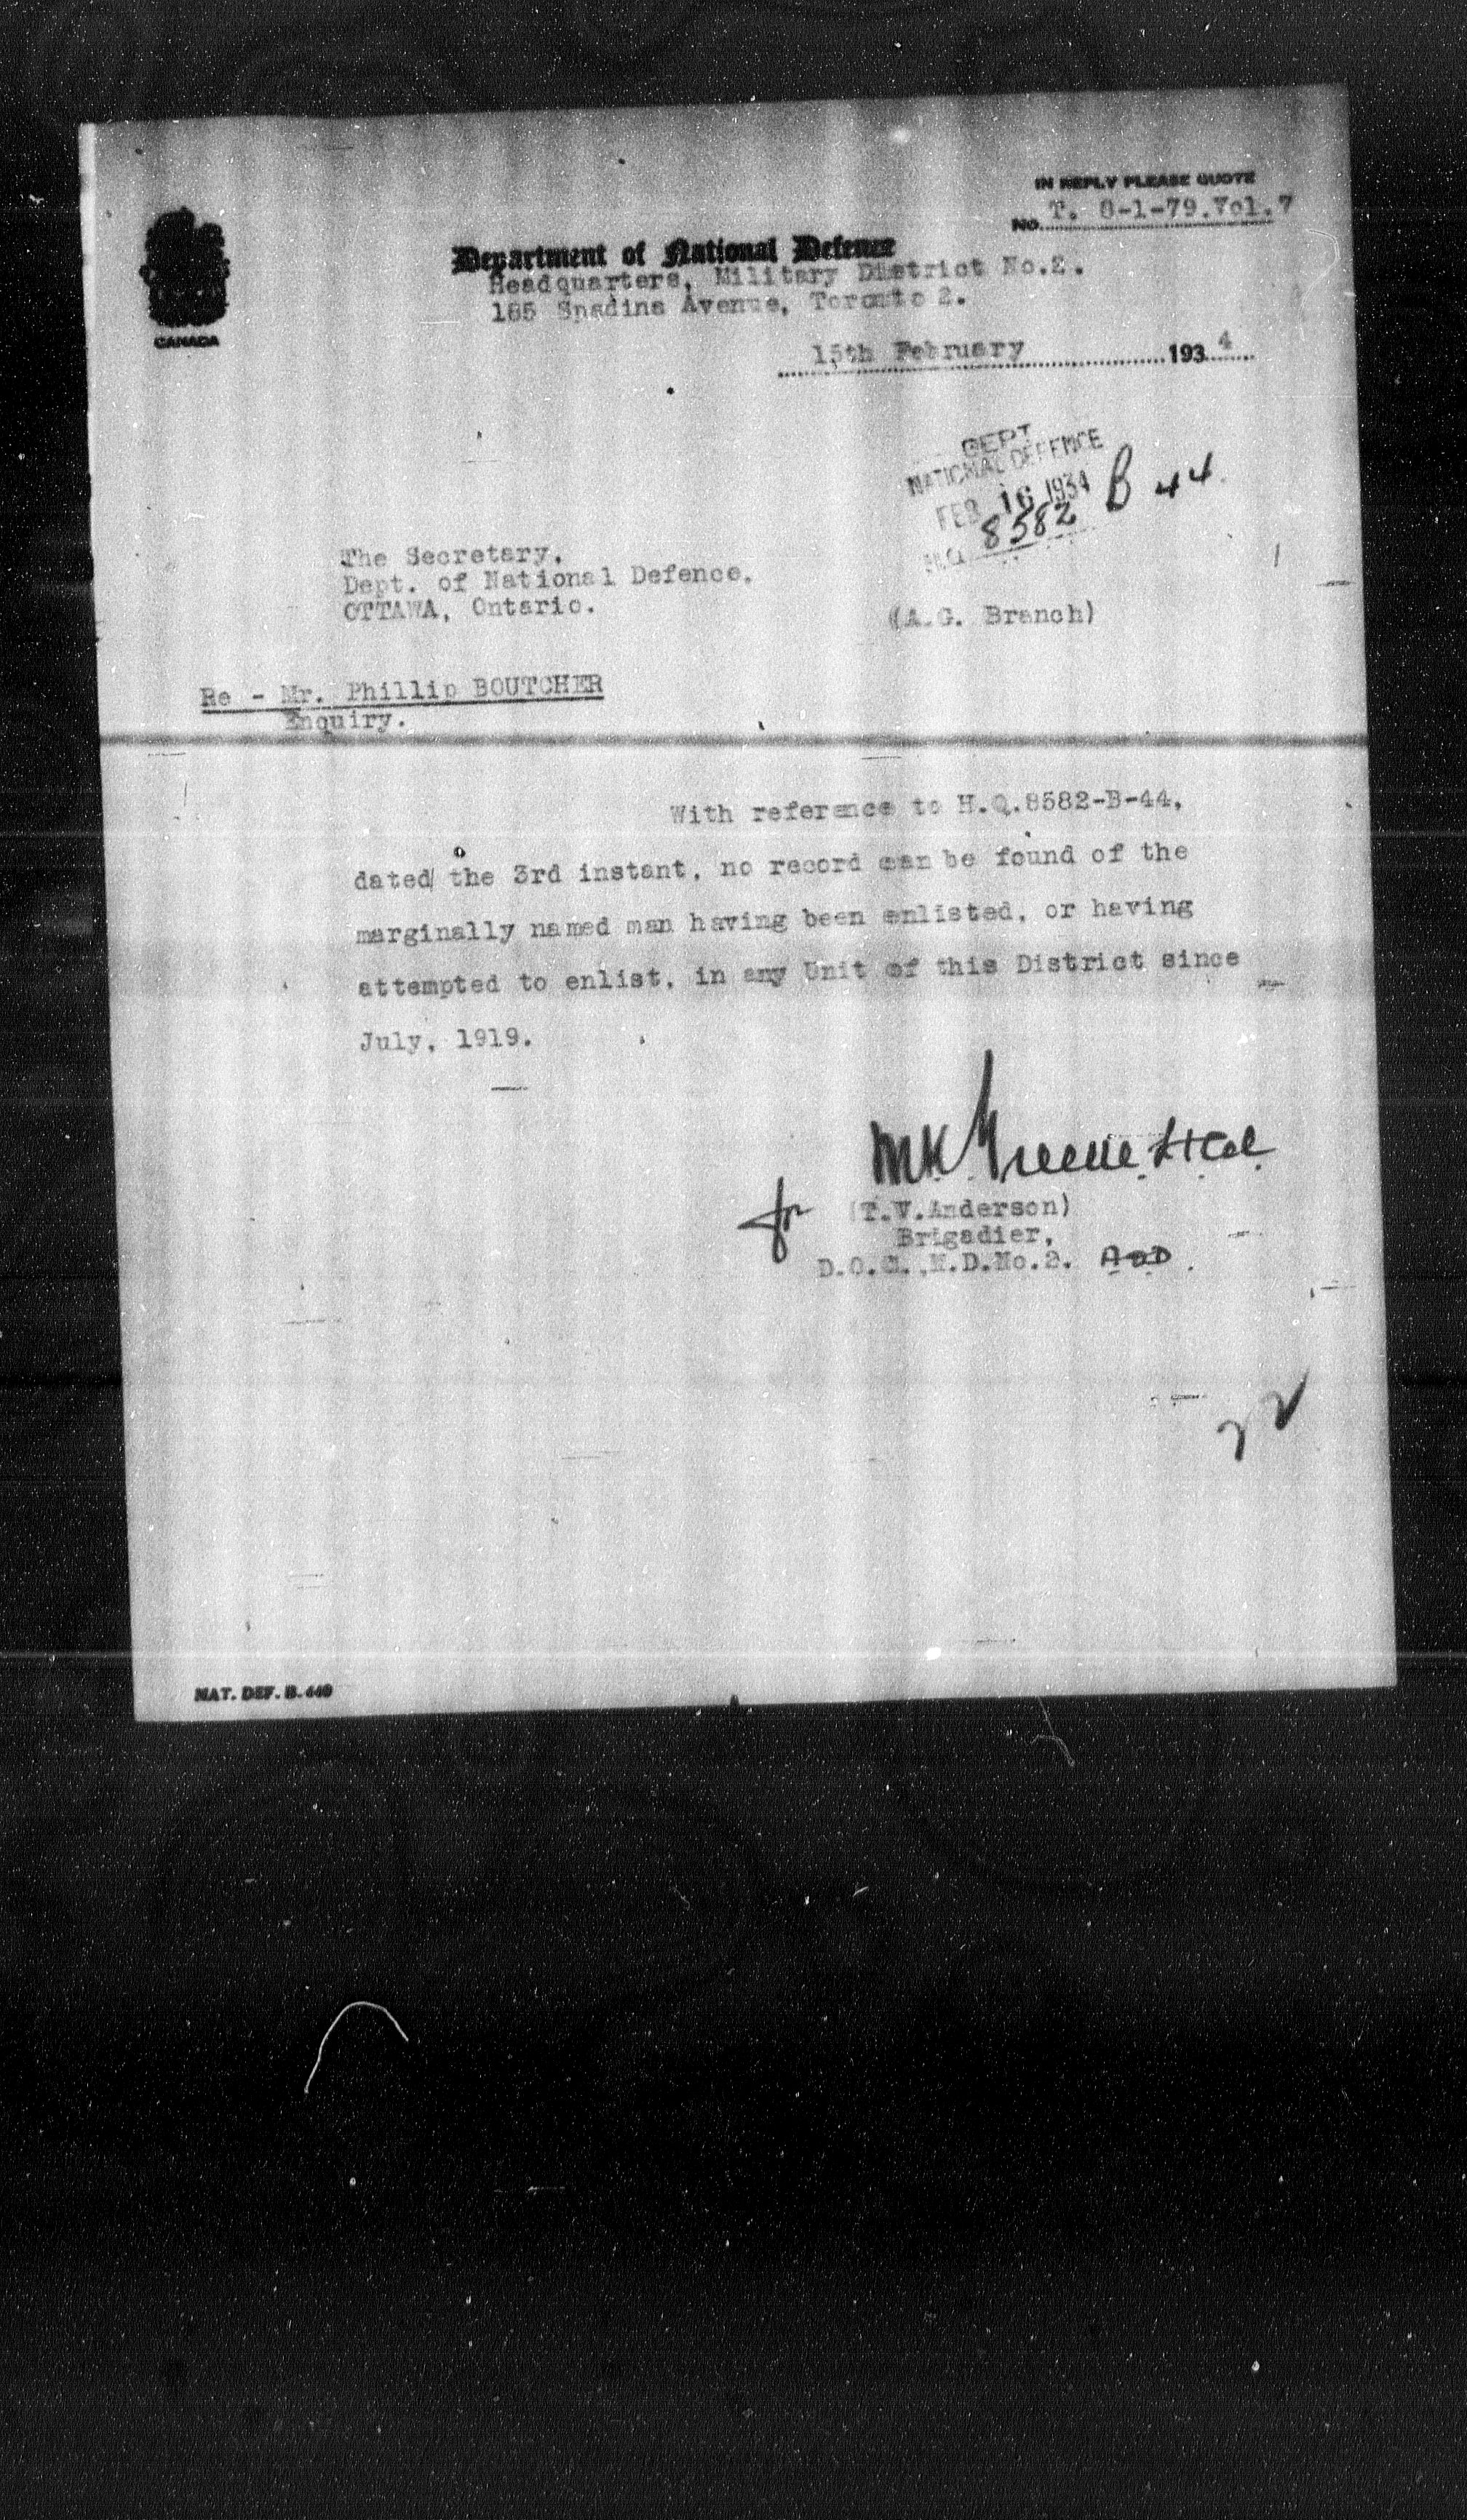 IN REPLY PLEASE QUOTE
No. T. 8-1-79.Vol.7
Department of National Defence
Headquarters, Military District No.2.
185 Spadina Avenue, Toronto 2.
CANADA
15th February 1934
DEPT.
NATIONAL DEFENCE
FEB 16 1934
H.Q. 8582 B 44
The Secretary,
Dept. of National Defence,
OTTAWA, Ontario.
(A.G. Branch)
Re - Mr. Phillip BOUTCHER
Enquiry.
With reference to H.Q.8582-B-44,
dated the 3rd instant, no record can be found of the
marginally named man having been enlisted, or having
attempted to enlist, in any Unit of this District since
July, 1919.
MK Greene Lt Col
for (T.V.Anderson)
Brigadier,
D.O.C.,M.D.No.2.
NAT. DEF. B. 449